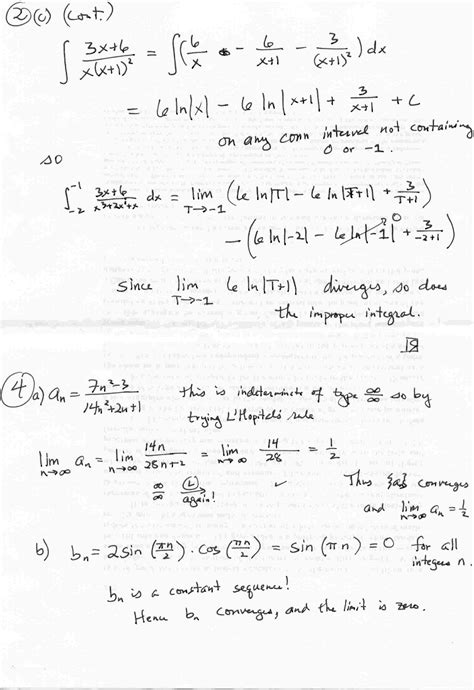 ② (c) (cont.)
∫ (3x+6)/(x(x+1)²) = ∫(6/x - 6/(x+1) - 3/(x+1)²) dx
= 6 ln|x| - 6 ln|x+1| + 3/(x+1) + C
on any conn interval not containing
0 or -1.
so
∫₋₂⁻¹ (3x+6)/(x³+2x²+x) dx = lim T→-1 (6 ln|T| - 6 ln|T+1| + 3/(T+1))
- (6 ln|-2| - 6 ln|-1| 0 + 3/(-2+1))
since lim T→-1 6 ln|T+1| diverges, so does
the improper integral.
④ a) aₙ = (7n²-3)/(14n²+2n+1) this is indeterminate of type ∞/∞ so by
trying L'Hopital's rule
lim n→∞ aₙ = lim n→∞ 14n/(28n+2) = lim n→∞ 14/28 = 1/2
∞/∞ Ⓛ again! ✓ Thus {aₙ} converges
and lim n→∞ aₙ = 1/2
b) bₙ = 2 sin (πn/2) · cos (πn/2) = sin (πn) = 0 for all
integers n.
bₙ is a constant sequence!
Hence bₙ converges, and the limit is zero.